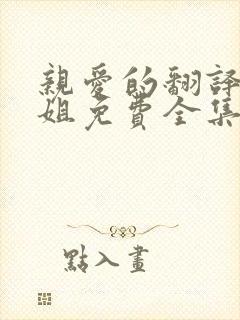 親愛的翻譯
姐免費全集
點入畫